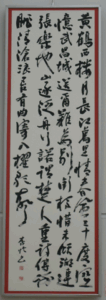 黄鹤西楼月长江万里情春风三十度空
忆武昌城送尔难为别衔杯惜未倾湖连
张乐地山逐泛舟行诺谓楚人重诗传谢
朓清沧浪吾有曲寄入棹歌声